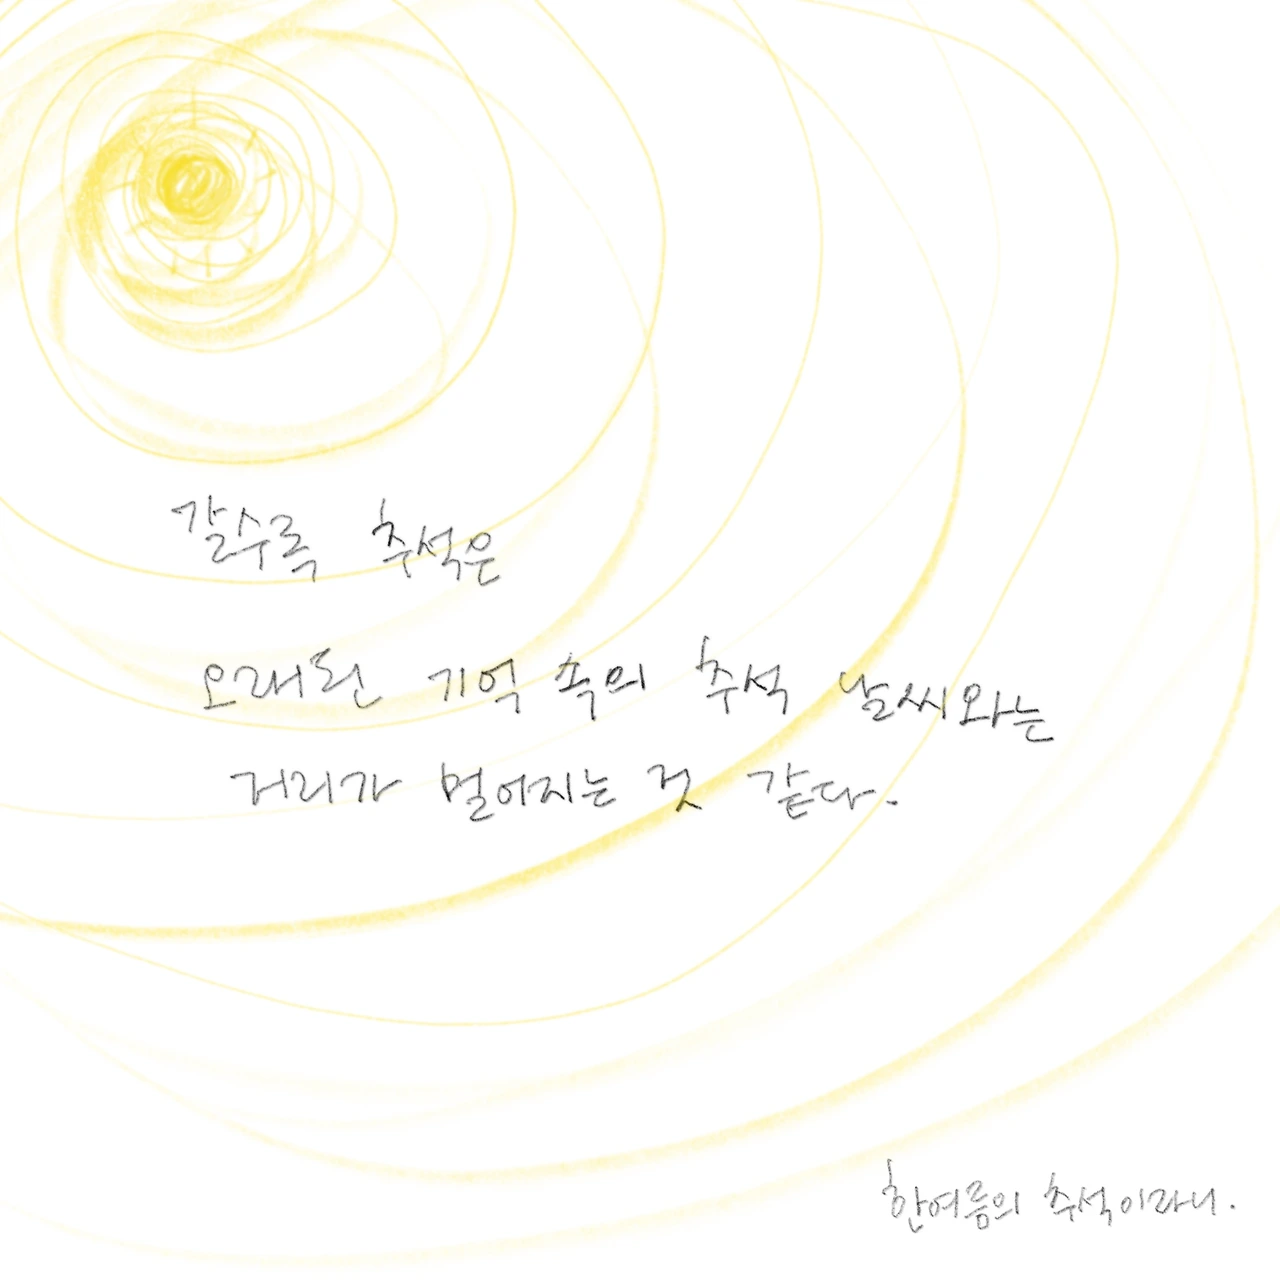 갈수록 추석은
오래된 기억 속의 추석 날씨와는
거리가 멀어지는 것 같다.
한여름의 추석이라니.